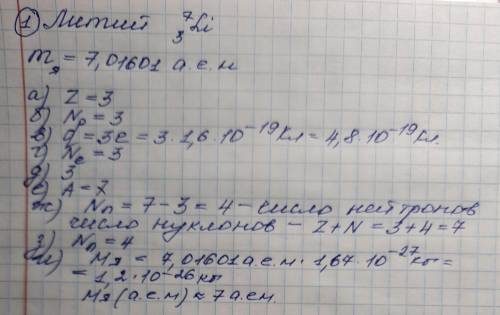 ① Литий ⁷₃Li
mя = 7,01601 а.е.м
а) Z = 3
б) Np = 3
в) q = 3e = 3 · 1,6 · 10⁻¹⁹ Кл = 4,8 · 10⁻¹⁹ Кл.
г) Ne = 3
д) 3
е) A = 7
ж) Nn = 7 - 3 = 4 - число нейтронов
число нуклонов - Z + N = 3 + 4 = 7
з) Nn = 4
и) Mя = 7,01601 а.е.м · 1,67 · 10⁻²⁷ кг =
= 1,2 · 10⁻²⁶ кг
Mя (а.е.м) ≈ 7 а.е.м.